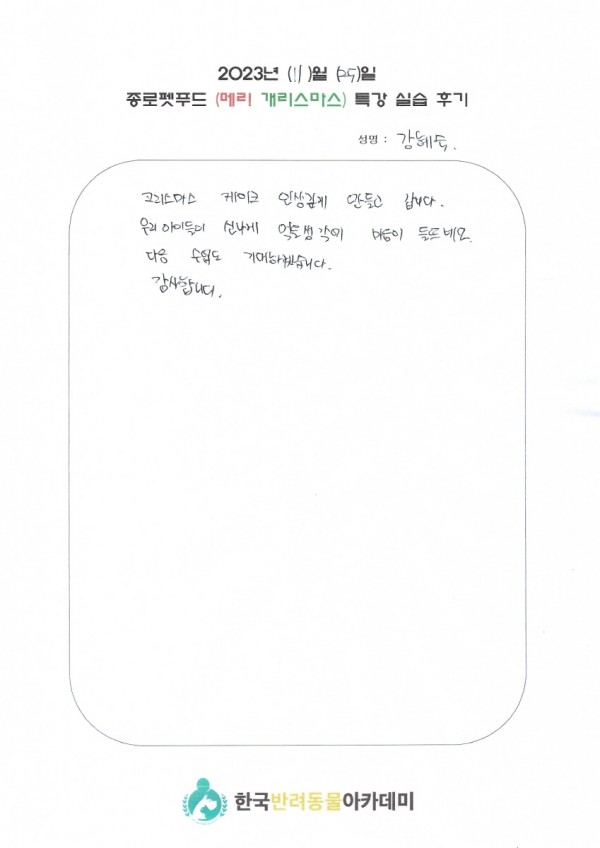 2023년 (11)월 (25)일
종로펫푸드 (메리 개리스마스) 특강 실습 후기
성명 : 강혜숙.
크리스마스 케이크 인상깊게 만들고 갑니다.
우리 아이들이 신나게 먹을생각에 마음이 들뜨네요.
다음 수업도 기대하겠습니다.
감사합니다.
한국반려동물아카데미